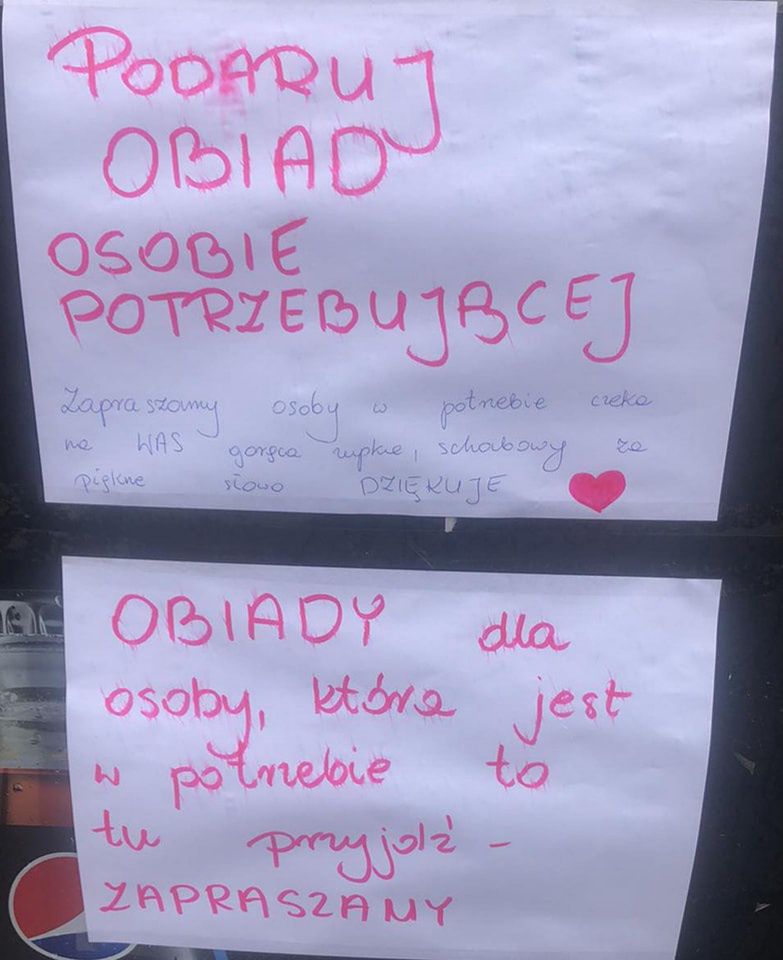 PODARUJ
OBIAD
OSOBIE
POTRZEBUJĄCEJ
Zapraszamy osoby w potrzebie czeka
na WAS gorąca zupka, schabowy za
piękne słowo DZIĘKUJE
OBIADY dla
osoby, która jest
w potrzebie to
tu przyjdź -
ZAPRASZAMY